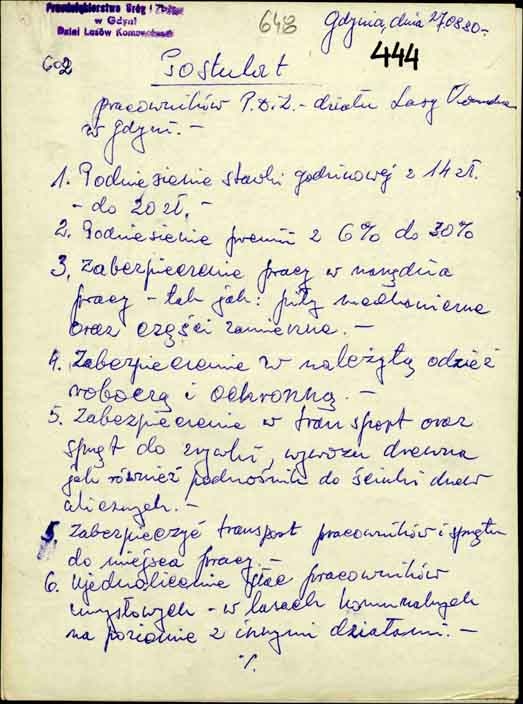 Przedsiębiorstwo Dróg i Zieleni
w Gdyni
Dział Lasów Komunalnych
648
Gdynia, dnia 27.08.80.-
444
602
Postulat
pracowników P.D.Z. - działu Lasy
w Gdyni. -
1. Podniesienie stawki godzinowej z 14 zł.
- do 20 zł. -
2. Podniesienie premii z 6% do 30%
3. Zabezpieczenie pracy w narzędzia
pracy - tak jak: piły mechaniczne
oraz części zamienne. -
4. Zabezpieczenie w należytą odzież
roboczą i ochronną. -
5. Zabezpieczenie w transport oraz
spręt do zrywki, wywozu drewna
jak również podnośnik do ścinki drzew
ulicznych. -
5. Zabezpieczyć transport pracowników i sprzętu
do miejsca pracy -
6. Ujednolicenie płac pracowników
umysłowych - w lasach komunalnych
na poziomie z innymi działami. -
·/.